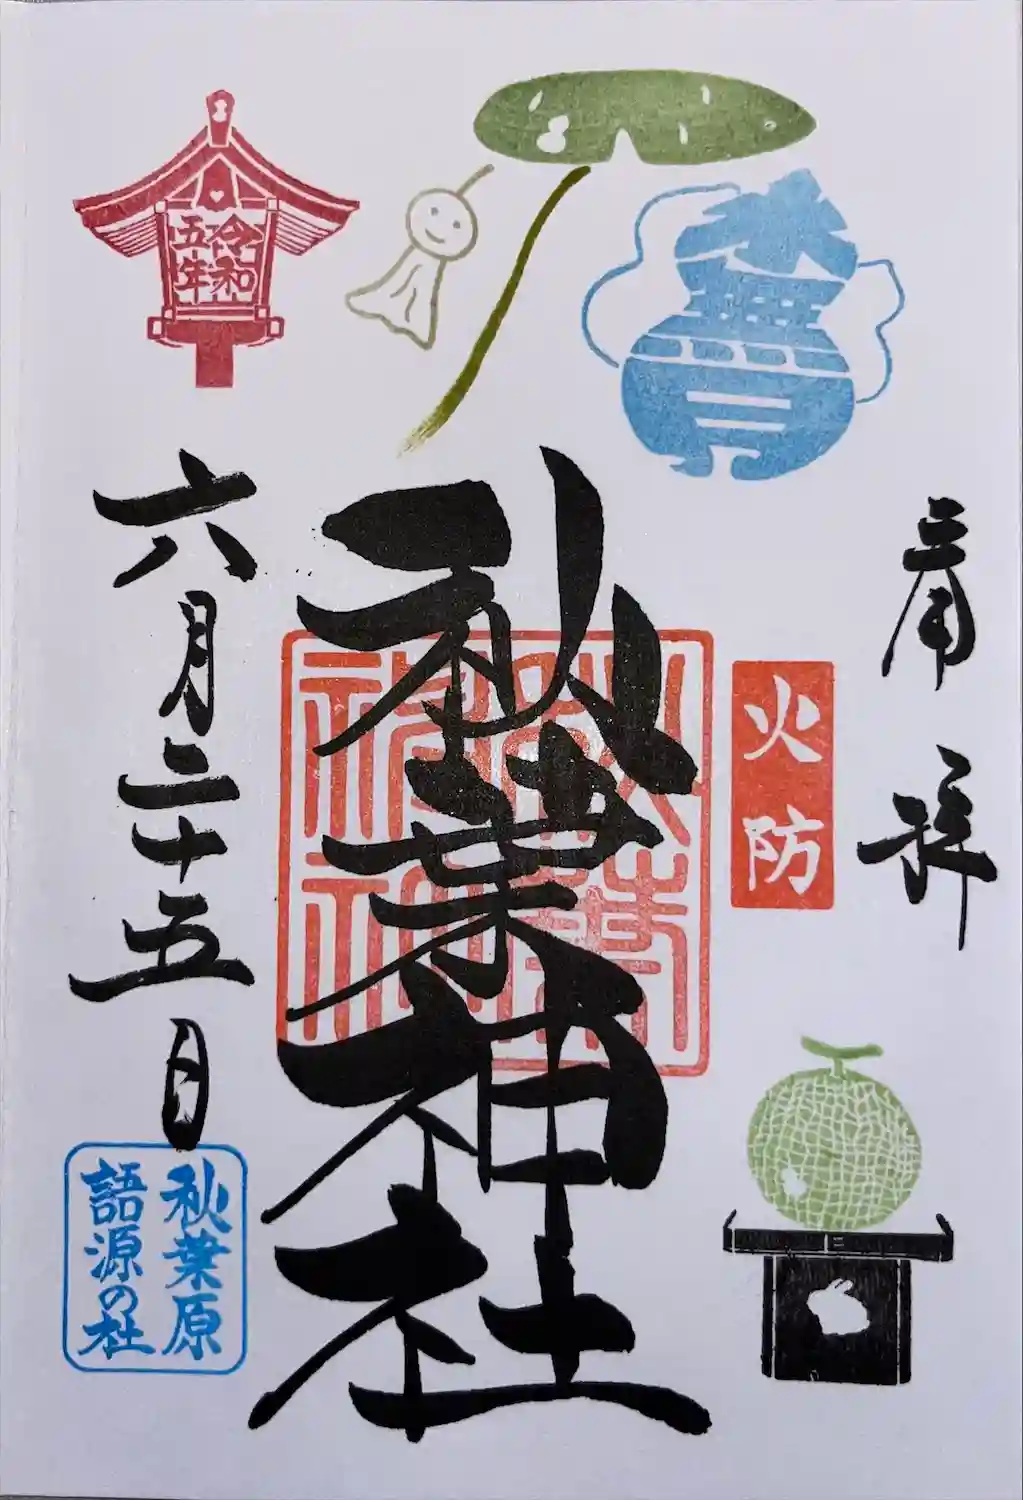 奉拝
火防
水無月
秋葉神社
秋葉神社
令和
五年
六月二十五日
秋葉原
語源の社